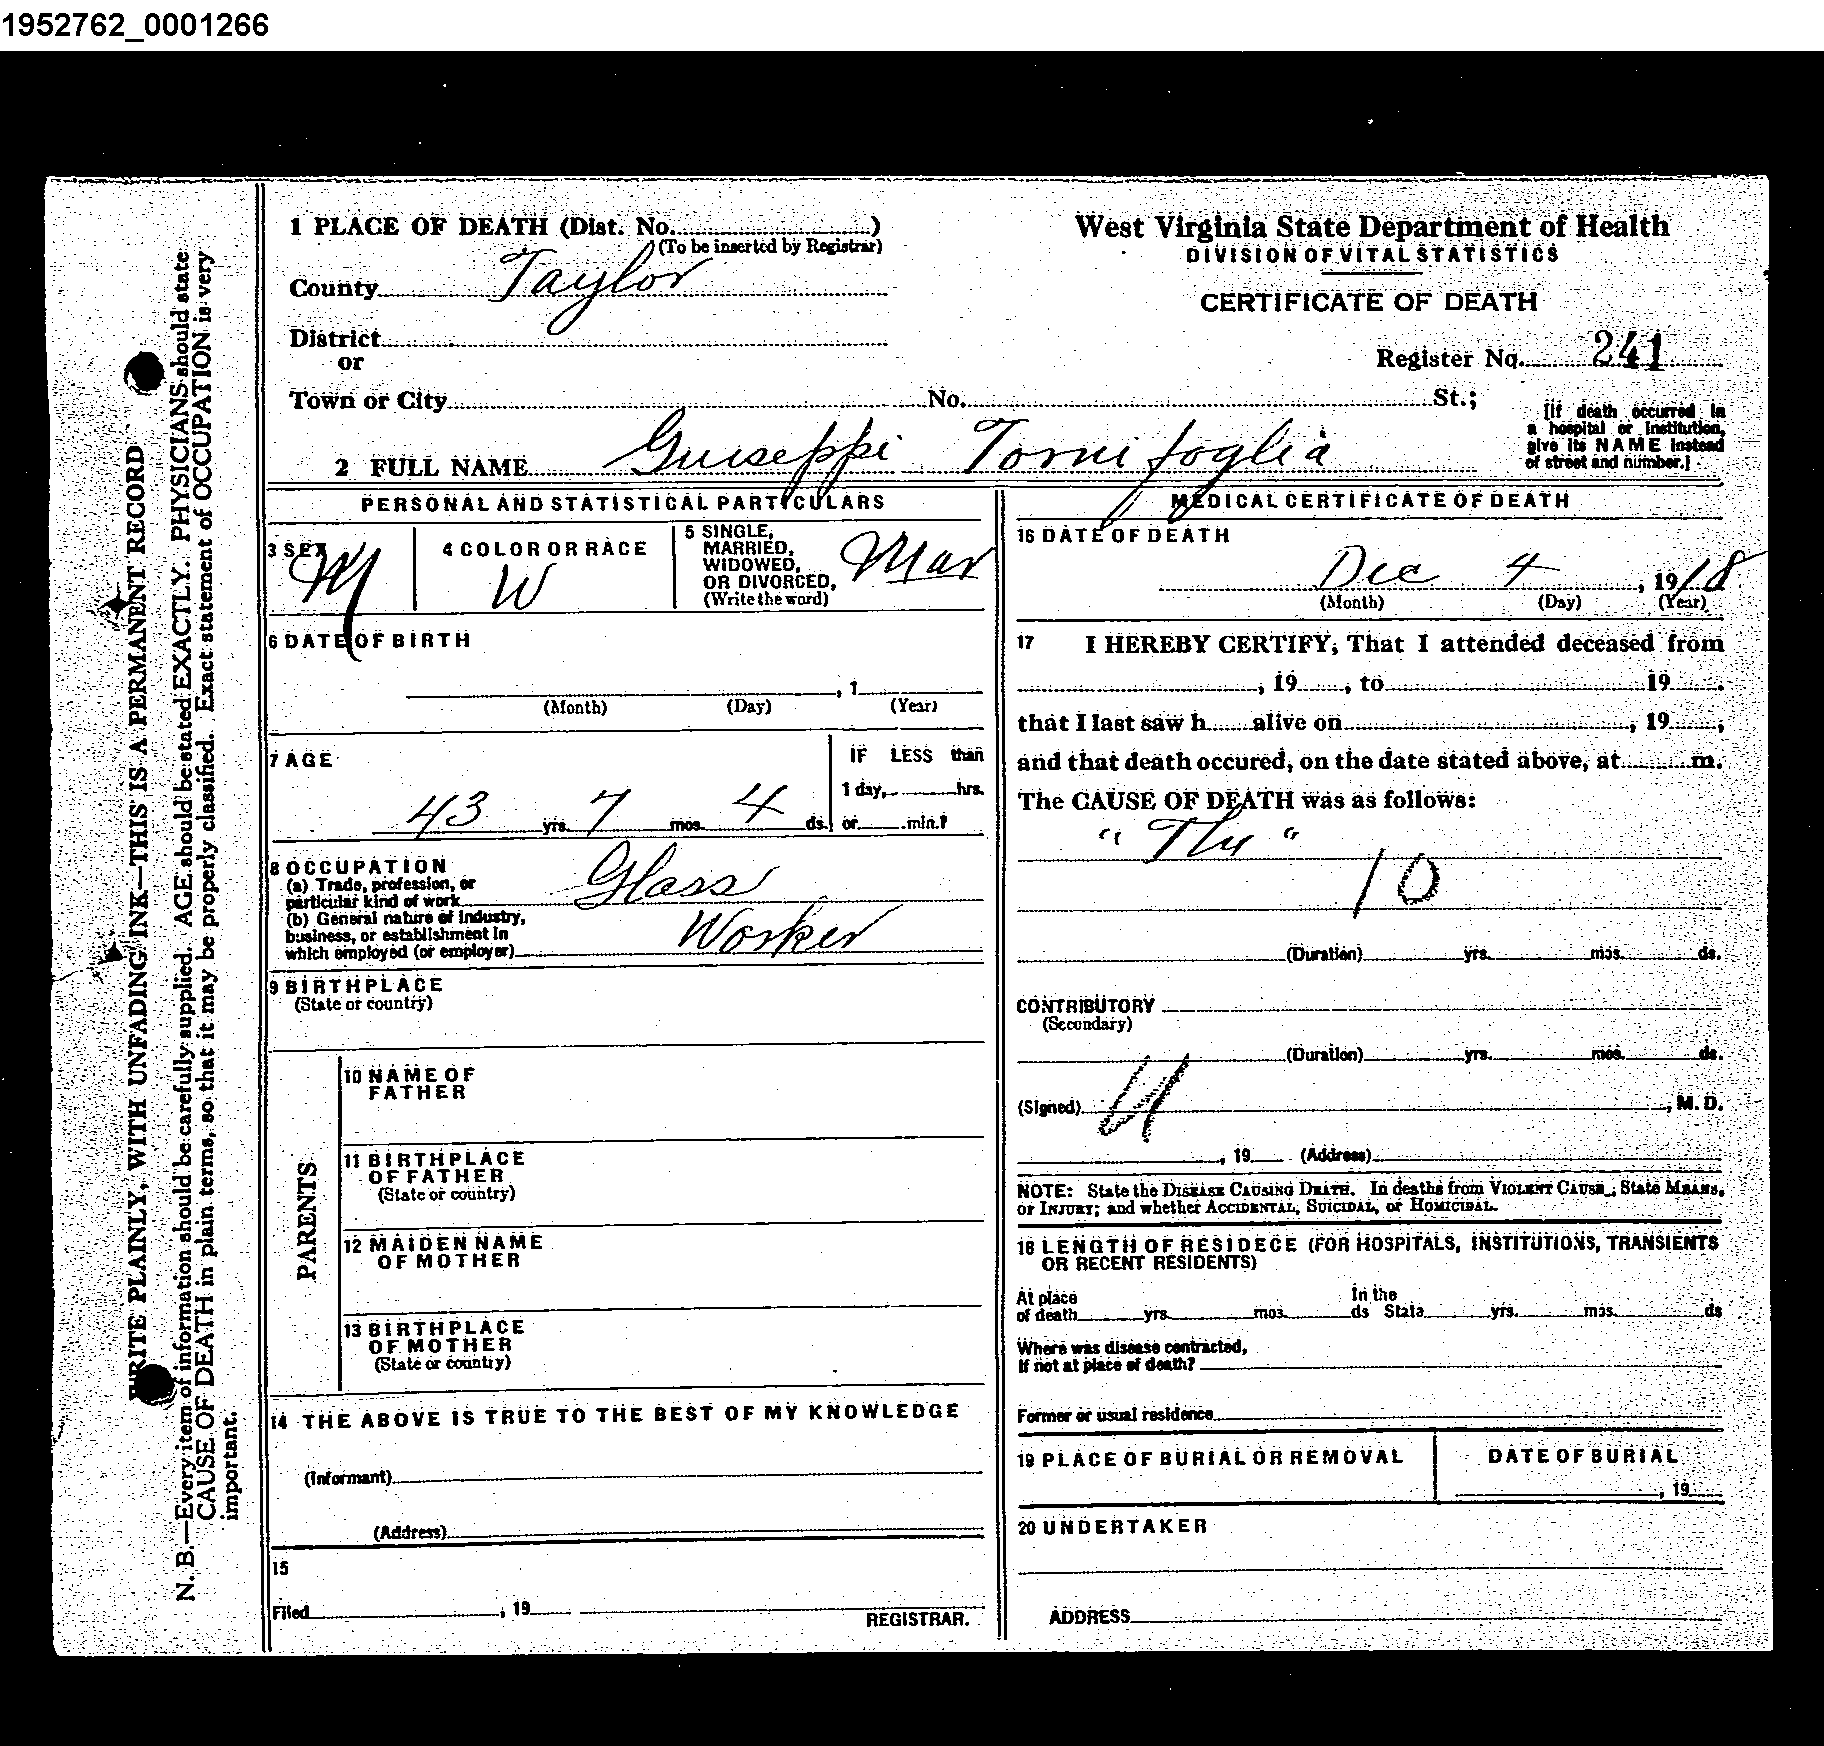 1952762_0001266
WRITE PLAINLY, WITH UNFADING INK—THIS IS A PERMANENT RECORD
N. B.—Every item of information should be carefully supplied. AGE should be stated EXACTLY. PHYSICIANS should state
CAUSE OF DEATH in plain terms, so that it may be properly classified. Exact statement of OCCUPATION is very
important.
1 PLACE OF DEATH (Dist. No. )
(To be inserted by Registrar)
County Taylor
District
or
Town or City No. St.;
2 FULL NAME Guiseppi Tornifoglia
West Virginia State Department of Health
DIVISION OF VITAL STATISTICS
CERTIFICATE OF DEATH
Register No. 241
[If death occurred in
a hospital or institution,
give its NAME instead
of street and number.]
PERSONAL AND STATISTICAL PARTICULARS
3 SEX M
4 COLOR OR RACE W
5 SINGLE,
MARRIED,
WIDOWED,
OR DIVORCED,
(Write the word)
Mar
6 DATE OF BIRTH
, 1
(Month) (Day) (Year)
7 AGE
43 yrs. 7 mos. 4 ds.
IF LESS than
1 day, hrs.
or min.?
8 OCCUPATION
(a) Trade, profession, or
particular kind of work Glass
(b) General nature of Industry,
business, or establishment in
which employed (or employer) Worker
9 BIRTHPLACE
(State or country)
PARENTS
10 NAME OF
FATHER
11 BIRTHPLACE
OF FATHER
(State or country)
12 MAIDEN NAME
OF MOTHER
13 BIRTHPLACE
OF MOTHER
(State or country)
14 THE ABOVE IS TRUE TO THE BEST OF MY KNOWLEDGE
(Informant)
(Address)
15
Filed , 19
REGISTRAR.
MEDICAL CERTIFICATE OF DEATH
16 DATE OF DEATH
Dec 4 , 1918
(Month) (Day) (Year)
17 I HEREBY CERTIFY, That I attended deceased from
, 19 , to 19 .
that I last saw h alive on , 19 ,
and that death occured, on the date stated above, at m.
The CAUSE OF DEATH was as follows:
"Flu"
10
(Duration) yrs. mos. ds.
CONTRIBUTORY
(Secondary)
(Duration) yrs. mos. ds.
(Signed) , M. D.
, 19 (Address)
NOTE: State the DISEASE CAUSING DEATH. In deaths from VIOLENT CAUSE, State MEANS,
OF INJURY; and whether ACCIDENTAL, SUICIDAL, or HOMICIDAL.
18 LENGTH OF RESIDECE (FOR HOSPITALS, INSTITUTIONS, TRANSIENTS
OR RECENT RESIDENTS)
At place In the
of death yrs. mos. ds State yrs. mos. ds
Where was disease contracted,
if not at place of death?
Former or usual residence
19 PLACE OF BURIAL OR REMOVAL
DATE OF BURIAL
, 19
20 UNDERTAKER
ADDRESS